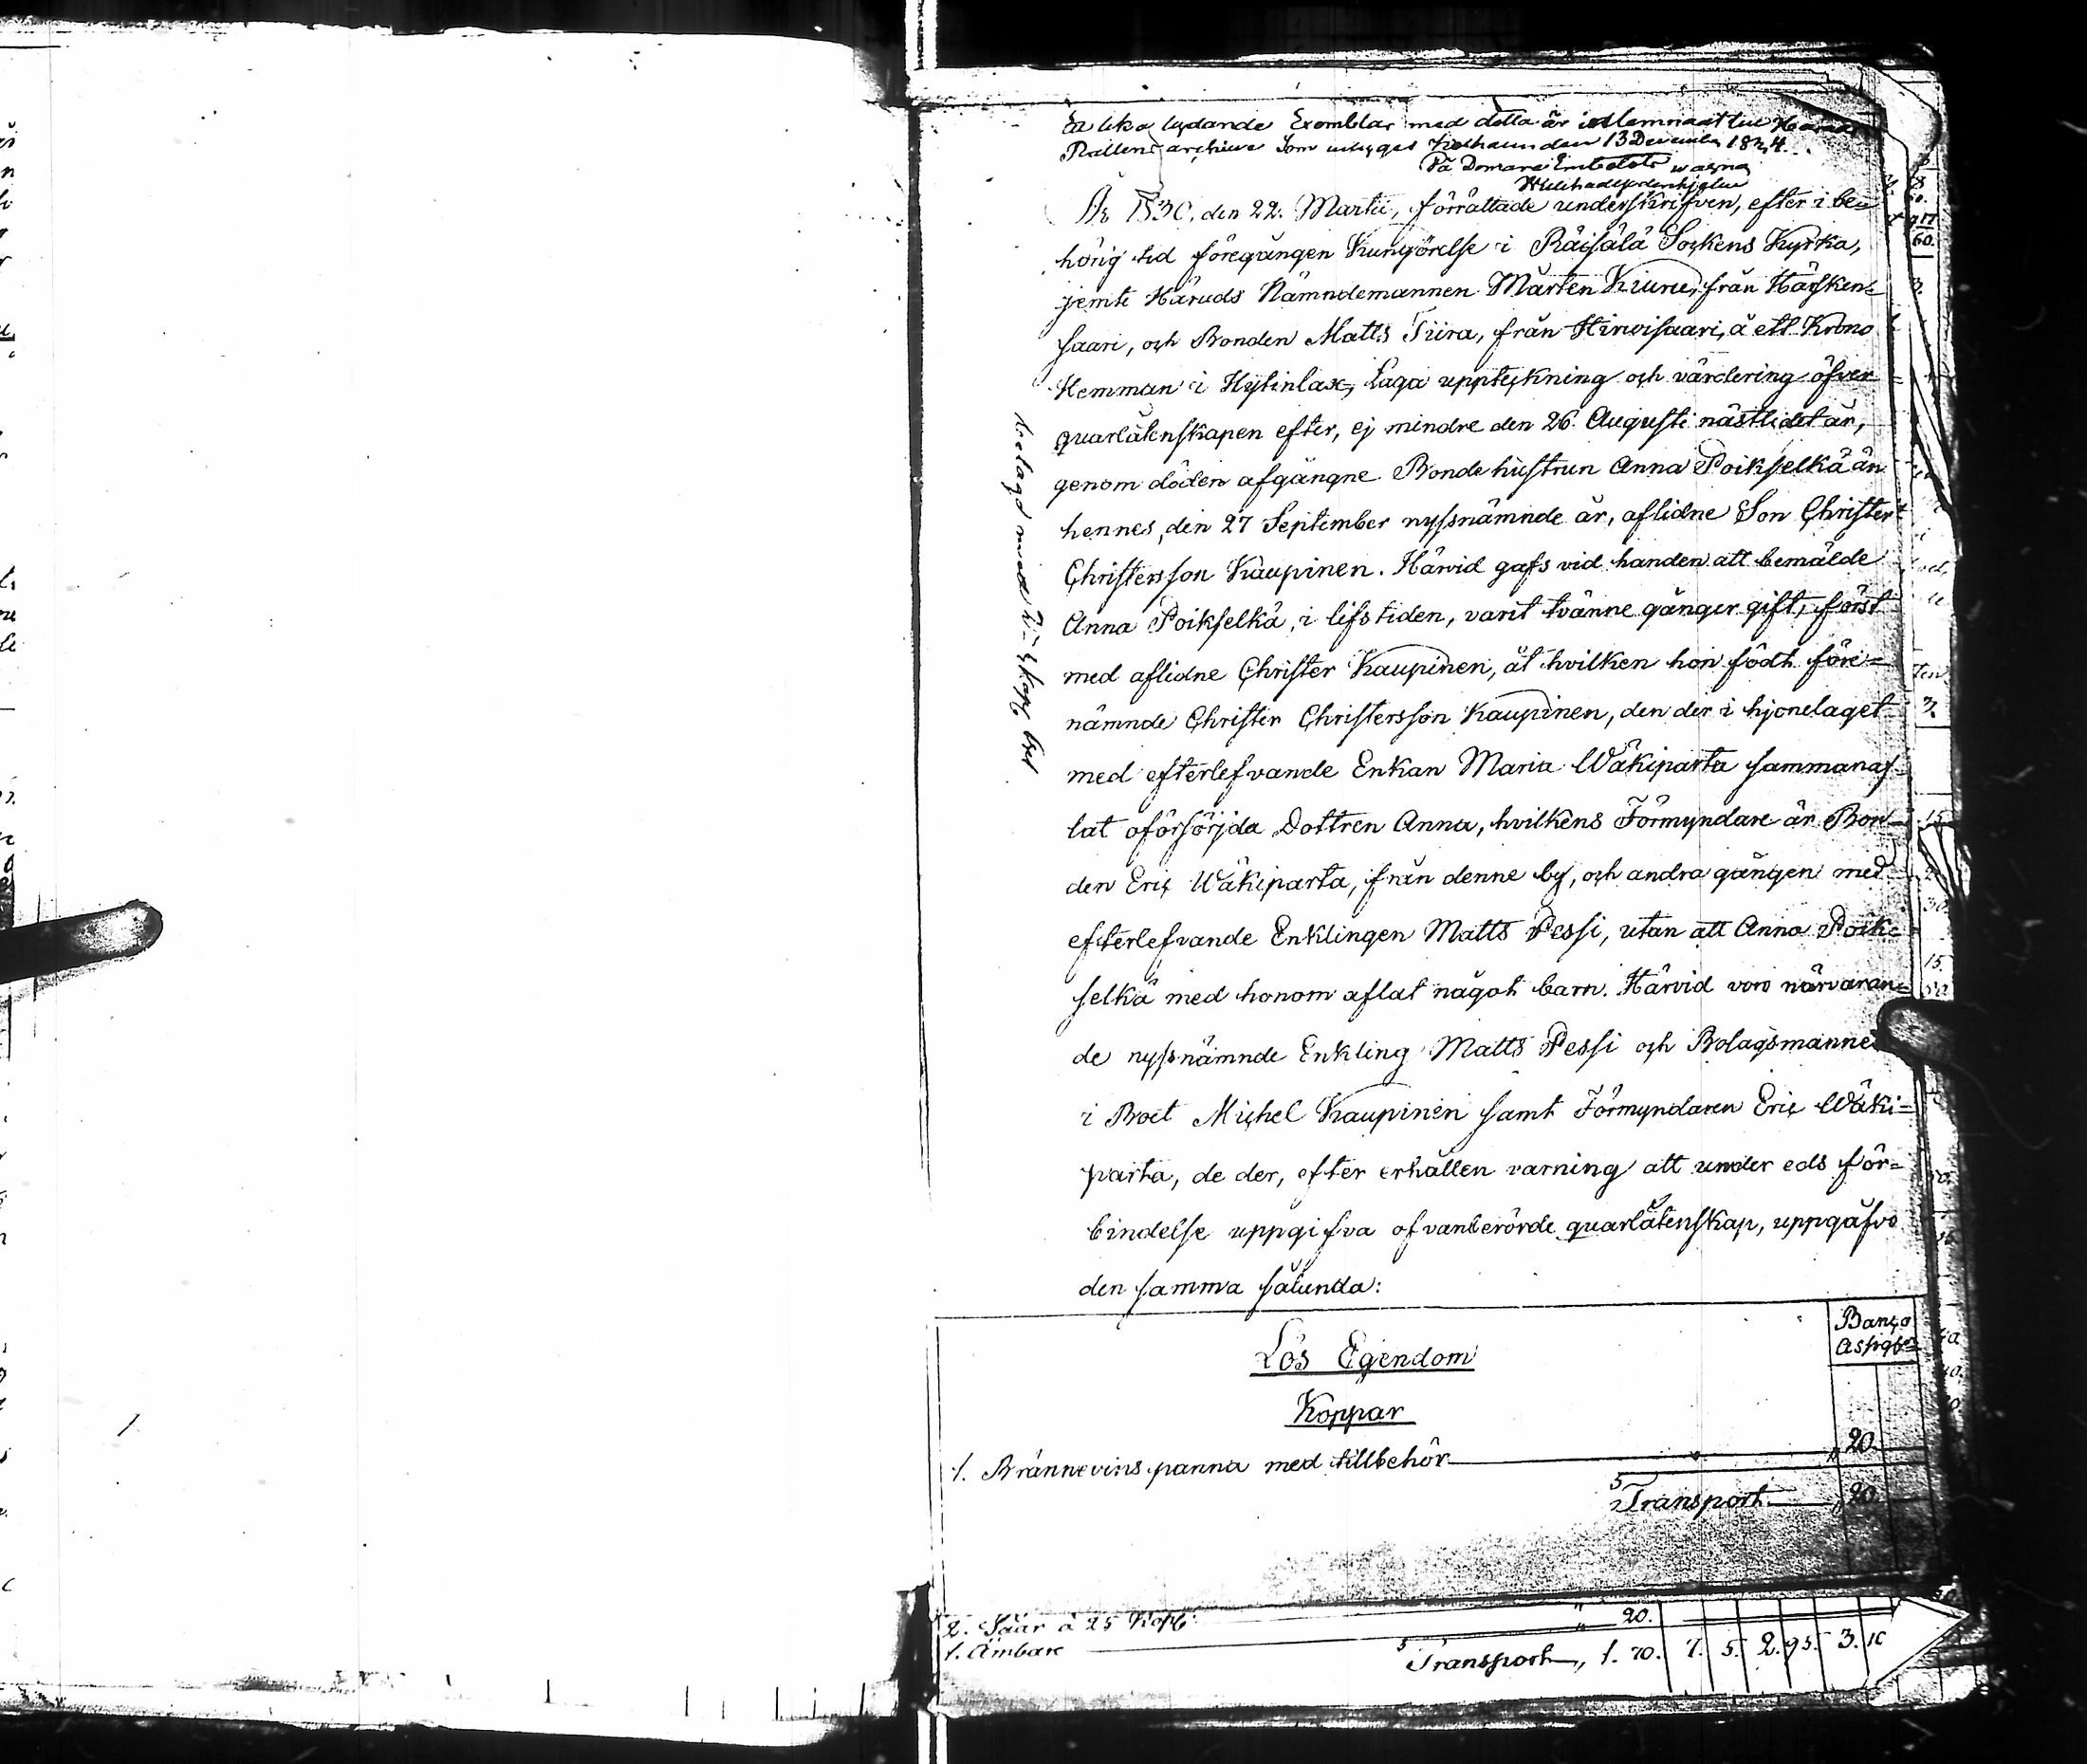 Ett lika lydande Exemblar med detta är inlemnaat till Härads
Rättens archive som intygas den 13 December 1834.
På Domare Embetets wägna
År 1830, den 22. Martii, förrättade underskrifven, efter i be=
hörig tid föregången Kungörelse i Räisälä Sockens Kyrka,
jemte Härads Nämndemannen Mårten Kiuru, från Häyken=
saari, och Bonden Matts Tiira, från Hirvisaari, å ett Krono
Hemman i Hytinlax, Laga uppteckning och värdering öfver
quarlåtenskapen efter, ej mindre den 26. Augusti nästlidet år,
genom döden afgångne Bondehustrun Anna Poikselkä än
hennes, den 27 September nyssnämnde år, aflidne Son Christer
Christersson Kaupinen. Härvid gafs vid handen att bemälde
Anna Poikselkä, i lifstiden, varit tvänne gånger gift, först
med aflidne Christer Kaupinen, åt hvilken hon födt före=
nämnde Christer Christersson Kaupinen, den der i hjonelaget
med efterlefvande Enkan Maria Wäkiparta sammanaf=
lat oförsörjda Dottren Anna, hvilkens Förmyndare är Bon=
den Eric Wäkiparta, från denne by, och andra gången med
efterlefvande Enklingen Matts Pessi, utan att Anna Poik=
selkä med honom aflat något barn. Härvid voro närvaran=
de nyssnämnde Enkling Matts Pessi och Bolagsmannen
i Boet Michel Kaupinen samt Förmyndaren Eric Wäki=
parta, de der, efter erhållen varning att under eds för=
bindelse uppgifva ofvanberörde quarlåtenskap, uppgåfvo
den samma sålunda:
belagd med 2
Banco
Assigt
Lös Egendom
Koppar
1. Brännevins panna med tillbehör " 20.
Transport " 20.
2. Såår à 25 Kop " 20.
1. Ämbare "
Transport " 1. 70. 7. 5. 2. 95. 3. 10